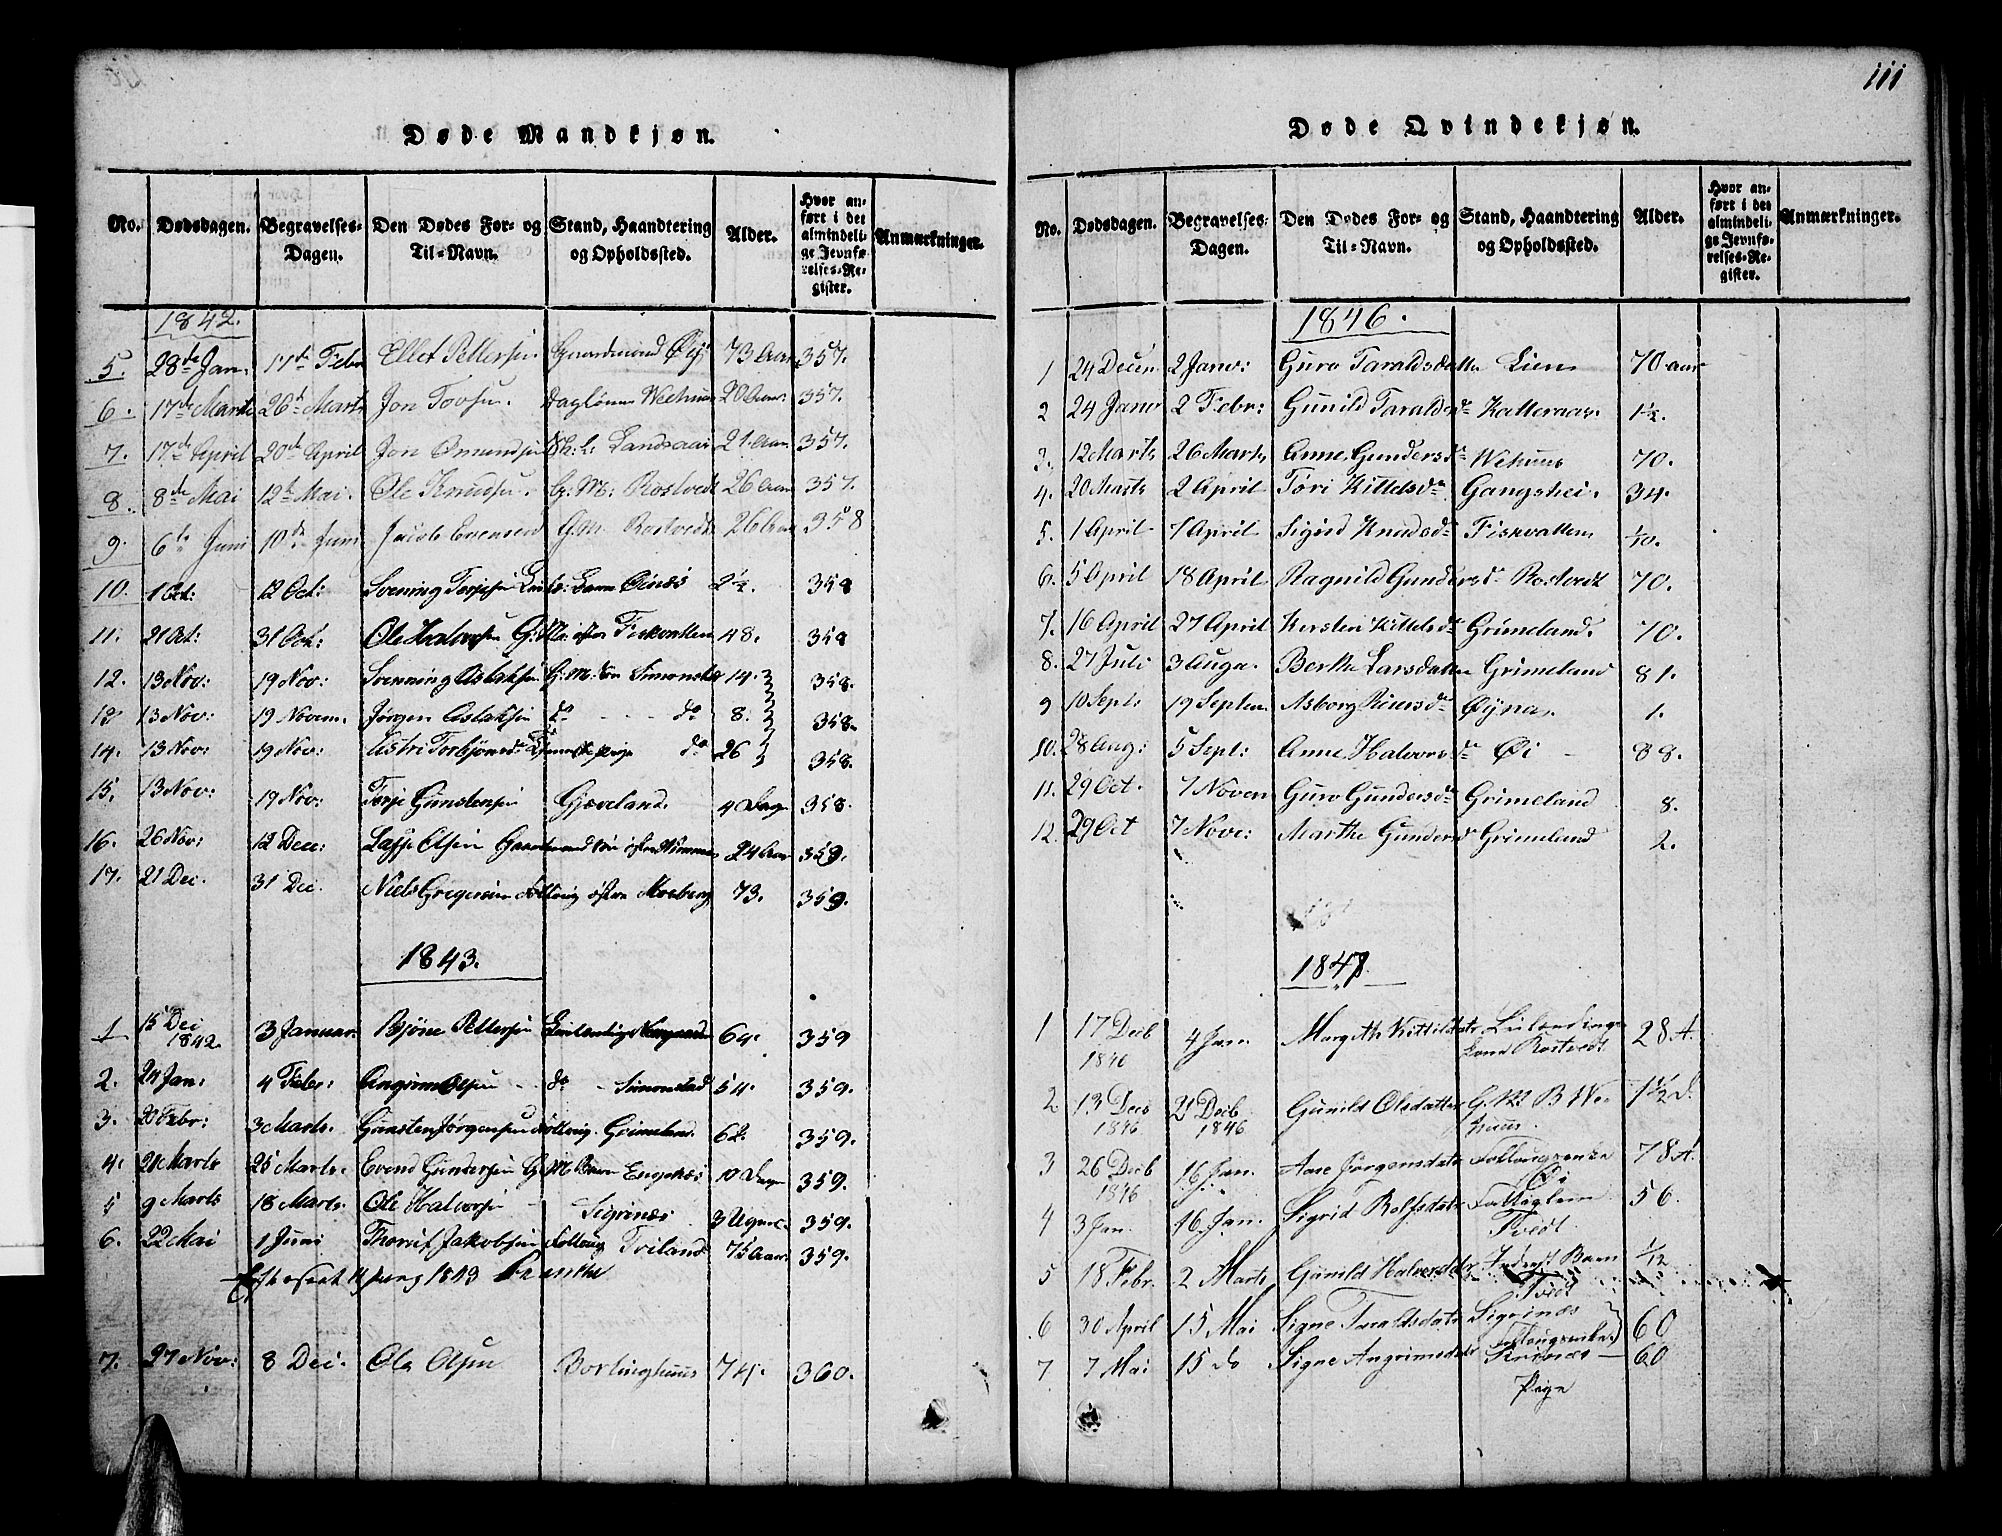 111
Døde Mandkjøn.
No. Dødsdagen. Begravelses-Dagen. Den Dødes For- og Til-Navn. Stand, Haandtering og Opholdssted. Alder. Hvor anført i det almindelige Jevnførelses-Register. Anmærkninger.
1842.
5. 28de Jan: Febr Ellef Pettersen Gaardmand Øij 73 Aar 357.
6. 17de Marts 26de Marts Jon Tovsen 20 Aar 357.
7. 17de April 20de April Jon Omundsen Landsaas 21 Aar 357.
8. 8de Mai 12te Mai. Ole Knudsen G: M: Rostvedt 26 Aar 357.
9. 6te Juni 10de Juni Jacob Evensen G.M. Rostvedt 26 Aar 358
10. 1 Oct: 12 Oct: Svenning Terjesen Barn Øinæs 2½. 358
11. 21 Oct: 31 Oct: Ole Halvorsen Fiskvatten 48. 358
12. 13 Nov: 19 Nov: Svenning Aslaksen G: M: Søn Simonstad 14. 358.
13 13 Nov: 19 Novem. Jørgen Aslaksen do do 8. 358.
14. 13 Nov: 19 Nov: Astri Torbjønsd. do 26 358.
15. 13 Nov: 19 Nov: Terje Gunstensen Gjøveland. 4 Dage 358.
16. 26 Nov: 12 Dece: Olsen 24 Aar 359.
17. 21 Dec. 31 Dec. Niels Gregersen 73. 359.
1843.
1 15 Dec 1842. 3 Januar. Bjøne Pettersen 64. 359
2. 24 Jan: 4 Febr: Angrim Olsen do Simonstad 54. 359.
3. 20 Febr: 3 Marts. Gunsten Jørgensen Grimeland. 62. 359.
4. 21 Marts 25 Marts. Evend Gundersen G. M. Barn Engenæs 10 Dage 359.
5 9 Marts 18 Marts. Ole Halvorsen Sigrinæs 3 Uger. 359.
6. 22 Mai 1 Juni Jakobsen 75 Aar. 359.
7. 27 Nov: 8 Dec. Ole Olsen 74. 360.
Døde Qvindekjøn.
No. Dødsdagen. Begravelses-Dagen. Den Dødes For- og Til-Navn. Stand, Haandtering og Opholdssted. Alder. Hvor anført i det almindelige Jevnførelses-Register. Anmærkninger.
1846.
1 24 Decem 2 Janv: Guro Taraldsdatter Lien 70 aar
2 24 Janv 2 Febr: Gunild Taraldsdr 1½.
3. 12 Marts 26 Marts Anne Gundersdr Wehuus 70.
4. 20 Marts 2 April Tøri Kittelsdr Gangshei. 34.
5. 1 April 7 April Sigrid Knudsdr Fiskvatten 1/10.
6. 5 April 18 April Ragnild Gundersdr Rostvedt 70.
7. 16 April 27 April Kersten Kittelsdr Grimeland. 70.
8. 27 Juli 3 Augu. Berthe Larsdatter Grimeland 81.
9 10 Sept: 19 Septem Asborg Øyna 1.
10. 28 Aug: 5 Sept: Anne Halvorsdr Øi 88.
11. 29 Oct. 7 Novem Guro Gundersdr Grimeland 8.
12. 29 Oct 7 Nove: Marthe Gundersd Grimeland 2.
1847.
1 17 Decb 1846 4 Jan. Margith Kittilsdtr Rostvedt 28 A.
2 13 Decb 1846 21 Decb 1846 Gunild Olsdatter G. M. B Wehuus. 1½ d.
3 26 Decb 1846 16 Jan. Aase Jørgensdatr Føllougsenke Øi 78 A.
4 3 Jan. 16 Jan. Sigrid Rolfsdatr Tvedt. 56.
5 18 Febr. 2 Marts Gunild Halvorsdtr Barn Tvedt 1/12
6 30 April 15 Mai Signe Taraldsdatr Sigrinæs Føllougsenke 60
7 7 Mai 15 do Signe Angrimsdatr Pige 60